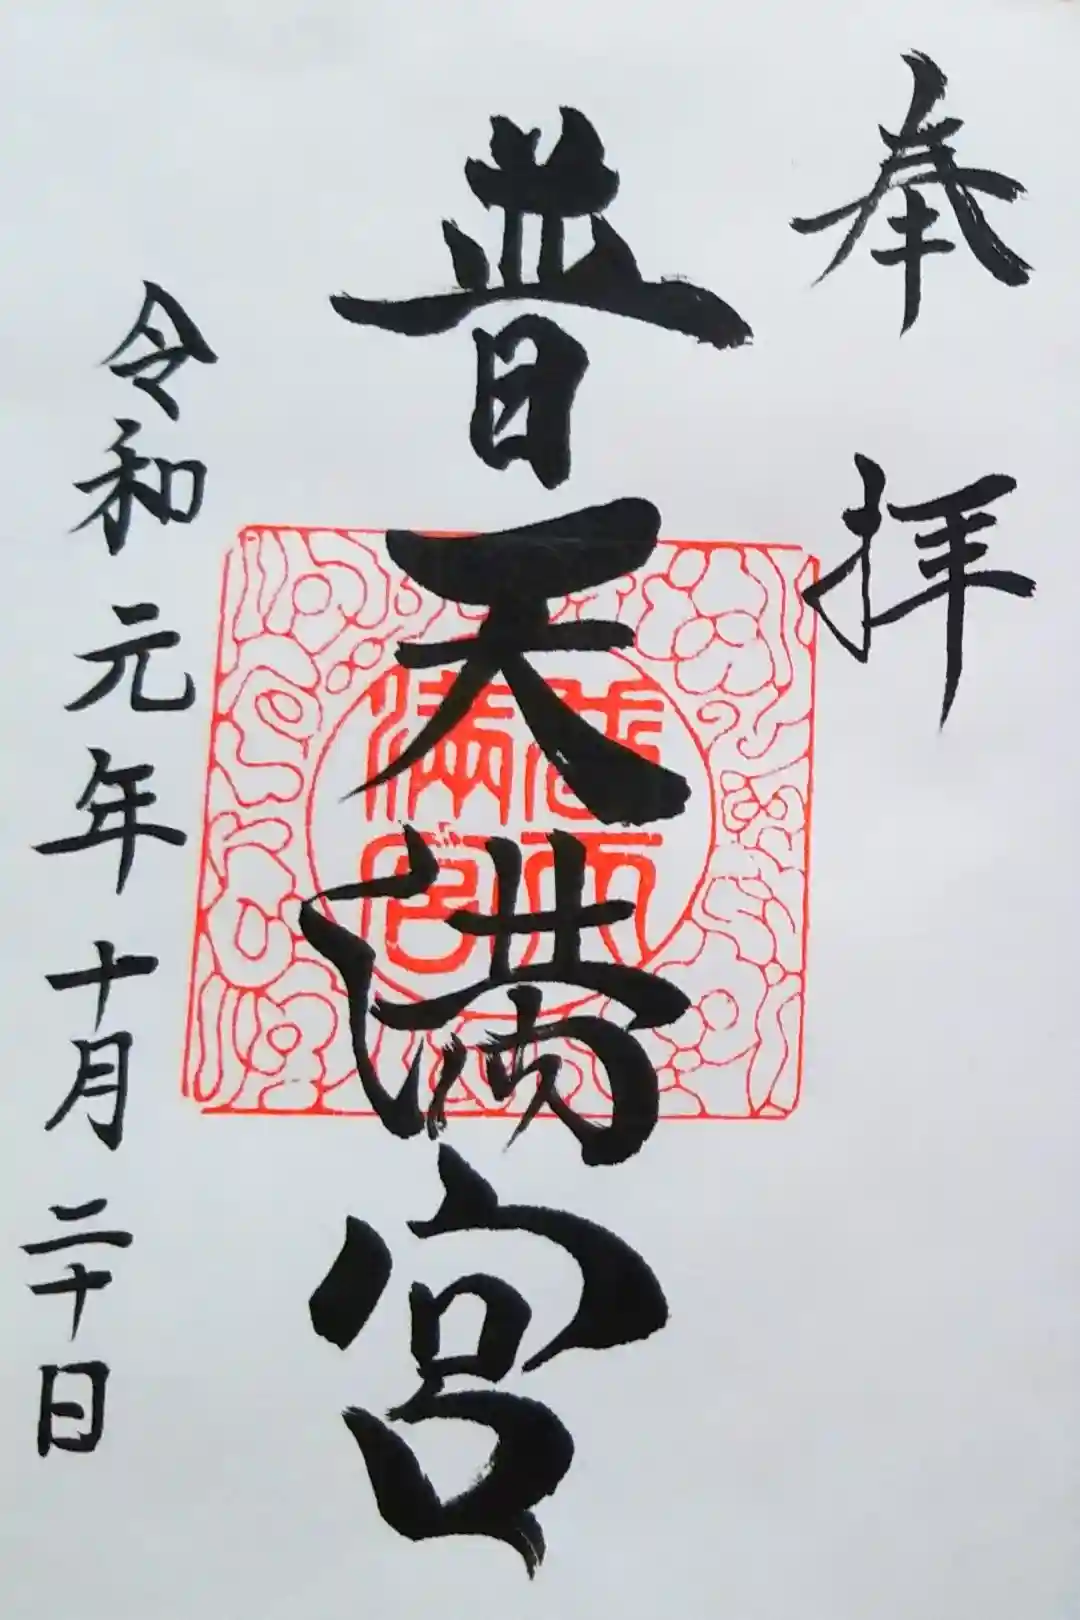 奉拝
普天満宮
天
満宮
令和元年十月二十日